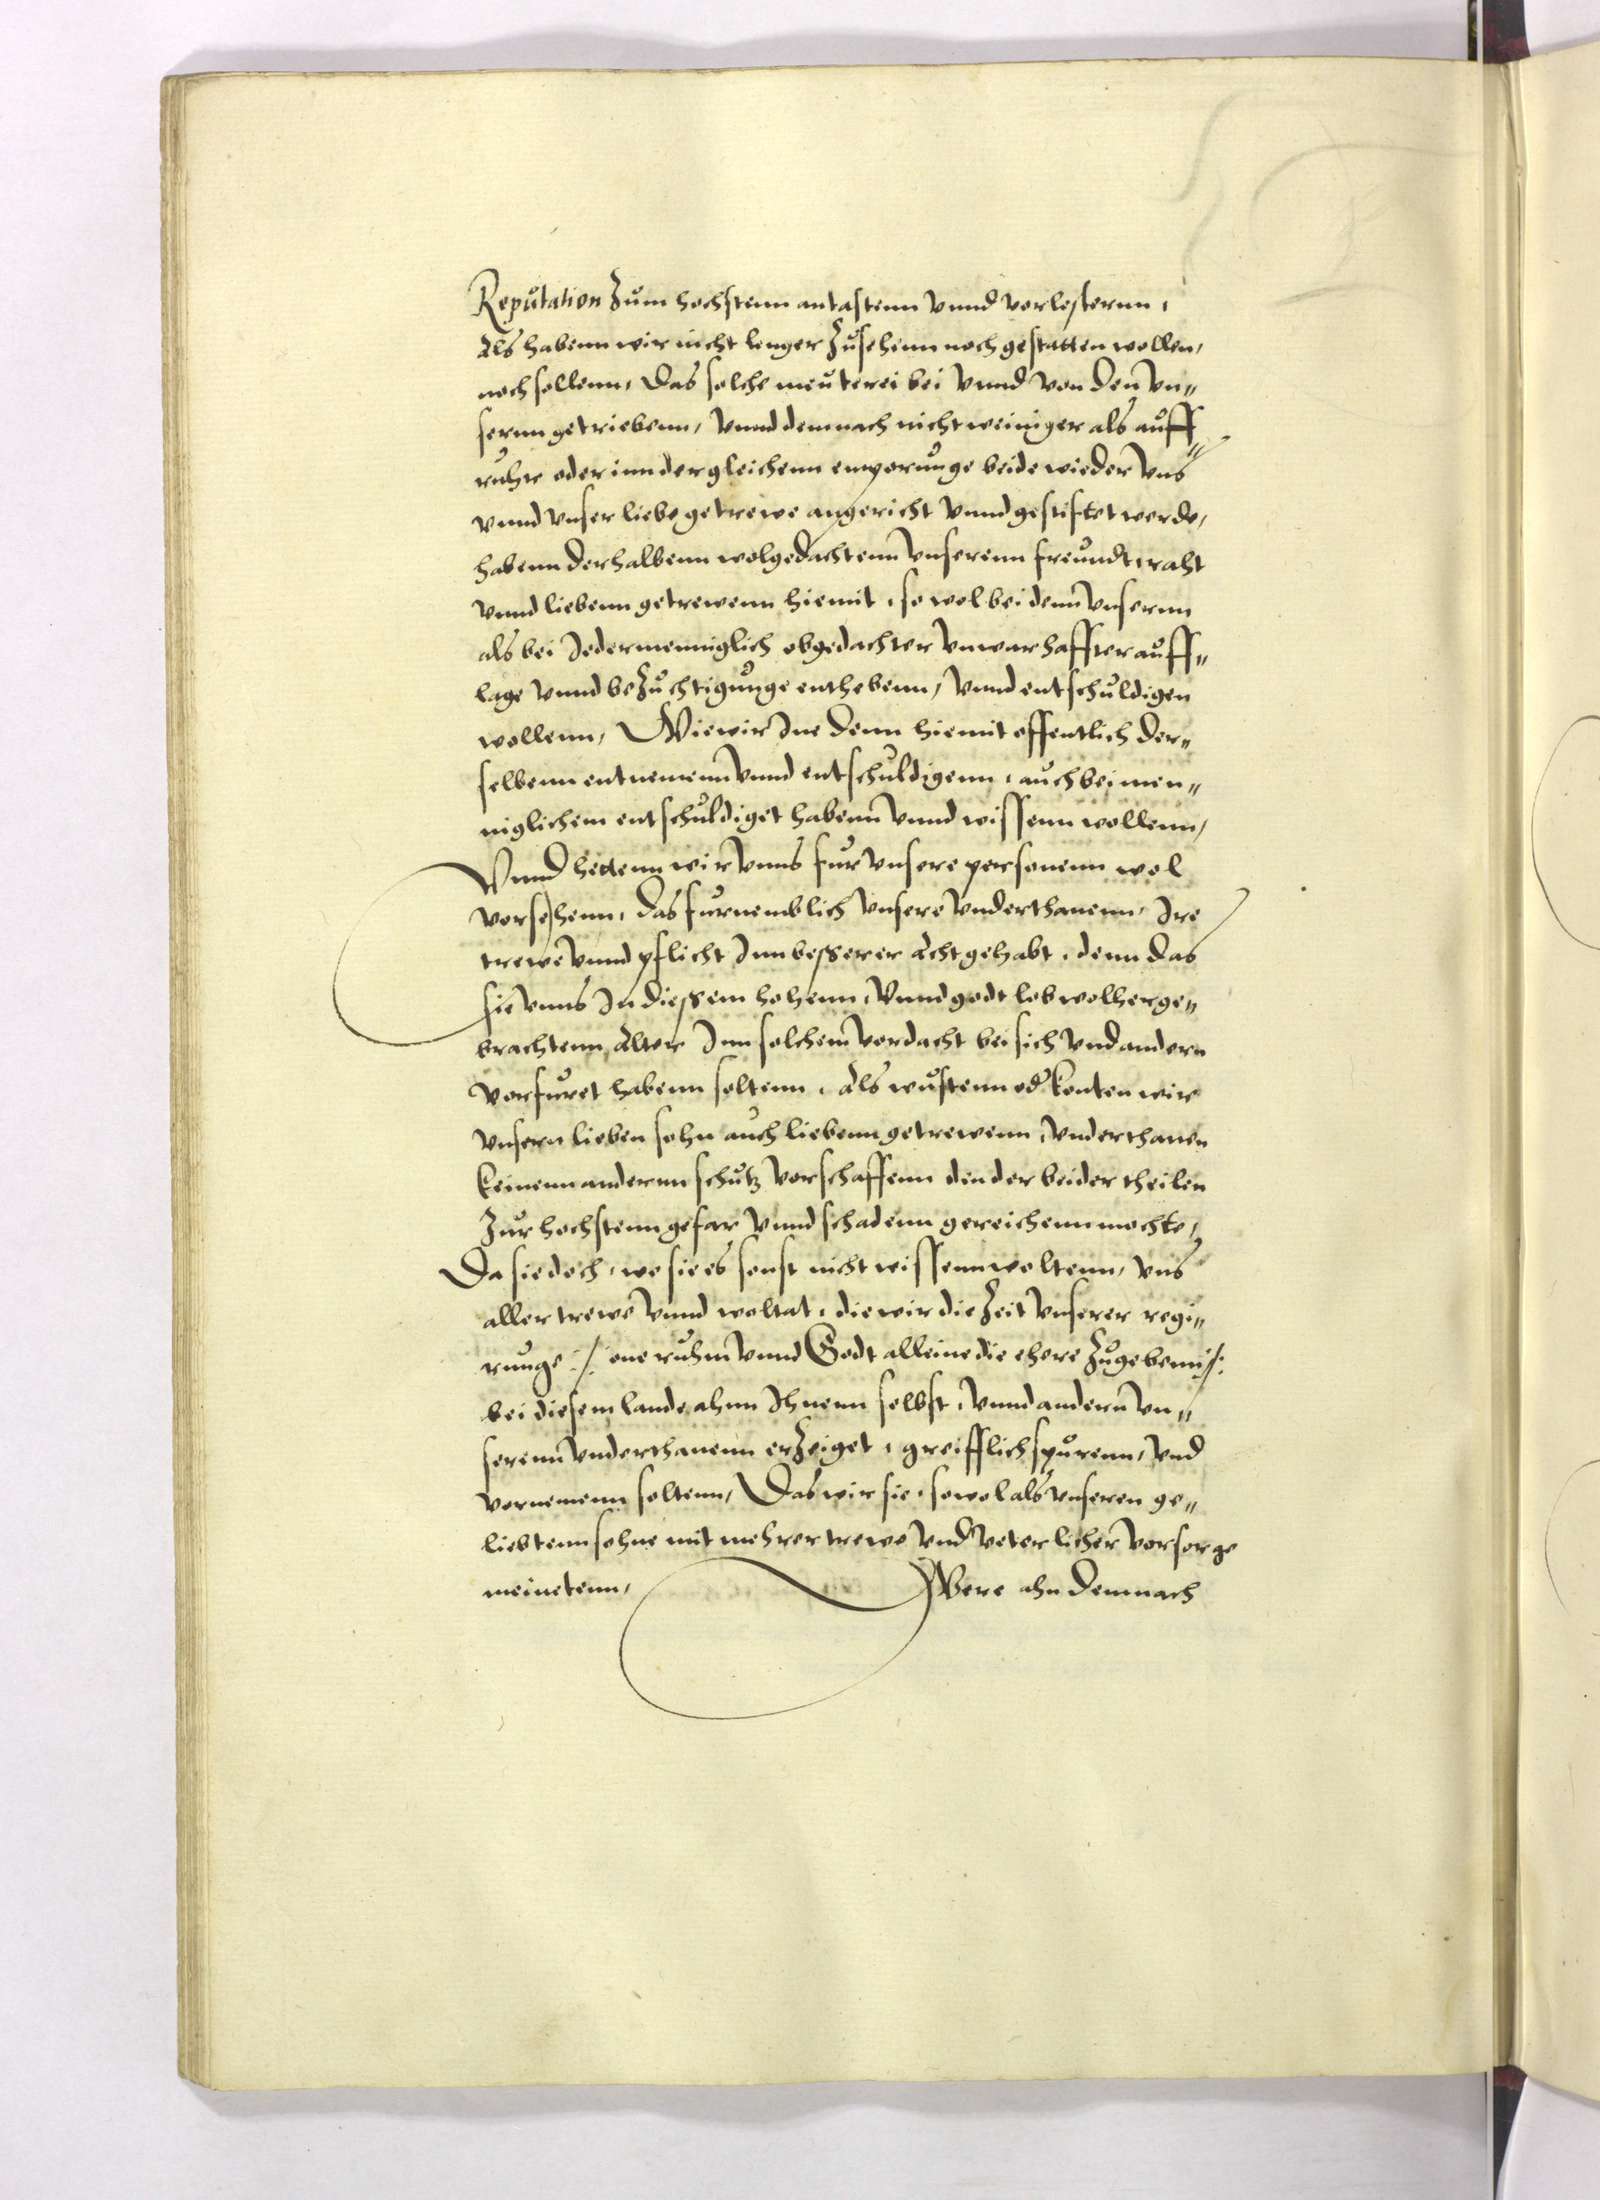 Reputation zum hochstenn antastenn vnnd vorlesternn,
Als habenn wir nicht lenger zusehenn noch gestatten wollen,
noch sollenn, Das solche meuterei bei vnnd von den vn„
sernn getriebenn, vnnd demnach nicht weiniger als auff„
ruhr oder inn dergleichenn emporunge beide wieder vns
vnnd vnser liebe getrewe angericht vnnd gestifftet werde,
habenn derhalbenn wolgedachtenn vnserenn freundt, raht
vnnd liebenn getrewenn hiemit, so wol bei denn vnsernn
als bei Jedermenniglich obgedachter vnwarhaffter auff„
lage vnnd bezuchtigunge enthebenn, vnnd entschuldigen
wollenn, Wie wir Ine denn hiemit offentlich der„
selbenn entnemenn vnnd entschuldigenn, auch bei men„
niglichem entschuldiget habenn vnnd wissenn wollenn,
Vnnd hettenn wir vnns fur vnsere personenn wol
vorsehenn, das furnemblich vnsere vnderthanenn, Ire
trewe vnnd pflicht Inn besserer acht gehabt, denn das
sie vnns In diessem hohenn, vnnd godt lob wolherge„
brachtenn Alter Inn solchem vordacht bei sich vnd andern
vorfuret habenn soltenn, Als wustenn od konten wir
vnsern lieben sohn auch liebenn getrewenn, vnderthanen
keinenn andernn schutz vorschaffenn den der beider theilen
zur hochstenn gefar vnnd schadenn gereichenn mochte,
Da sie doch, wo sie es sonst nicht wissenn woltenn, vns
aller trewe vnnd woltat, die wir die Zeit vnserer regi„
runge ./. one ruhm vnnd Godt alleine die ehere zugebenn ./.
bei diesem lande ahnn Ihnenn selbst, vnnd andern vn„
serenn vnderthanenn erzeiget, greifflich spurenn, vnd
vornemenn soltenn, Das wir sie, sowol als vnseren ge„
liebtenn sohne mit mehrer trewe vnd veterlicher vorsorge
meinetenn, Were ahn demnach